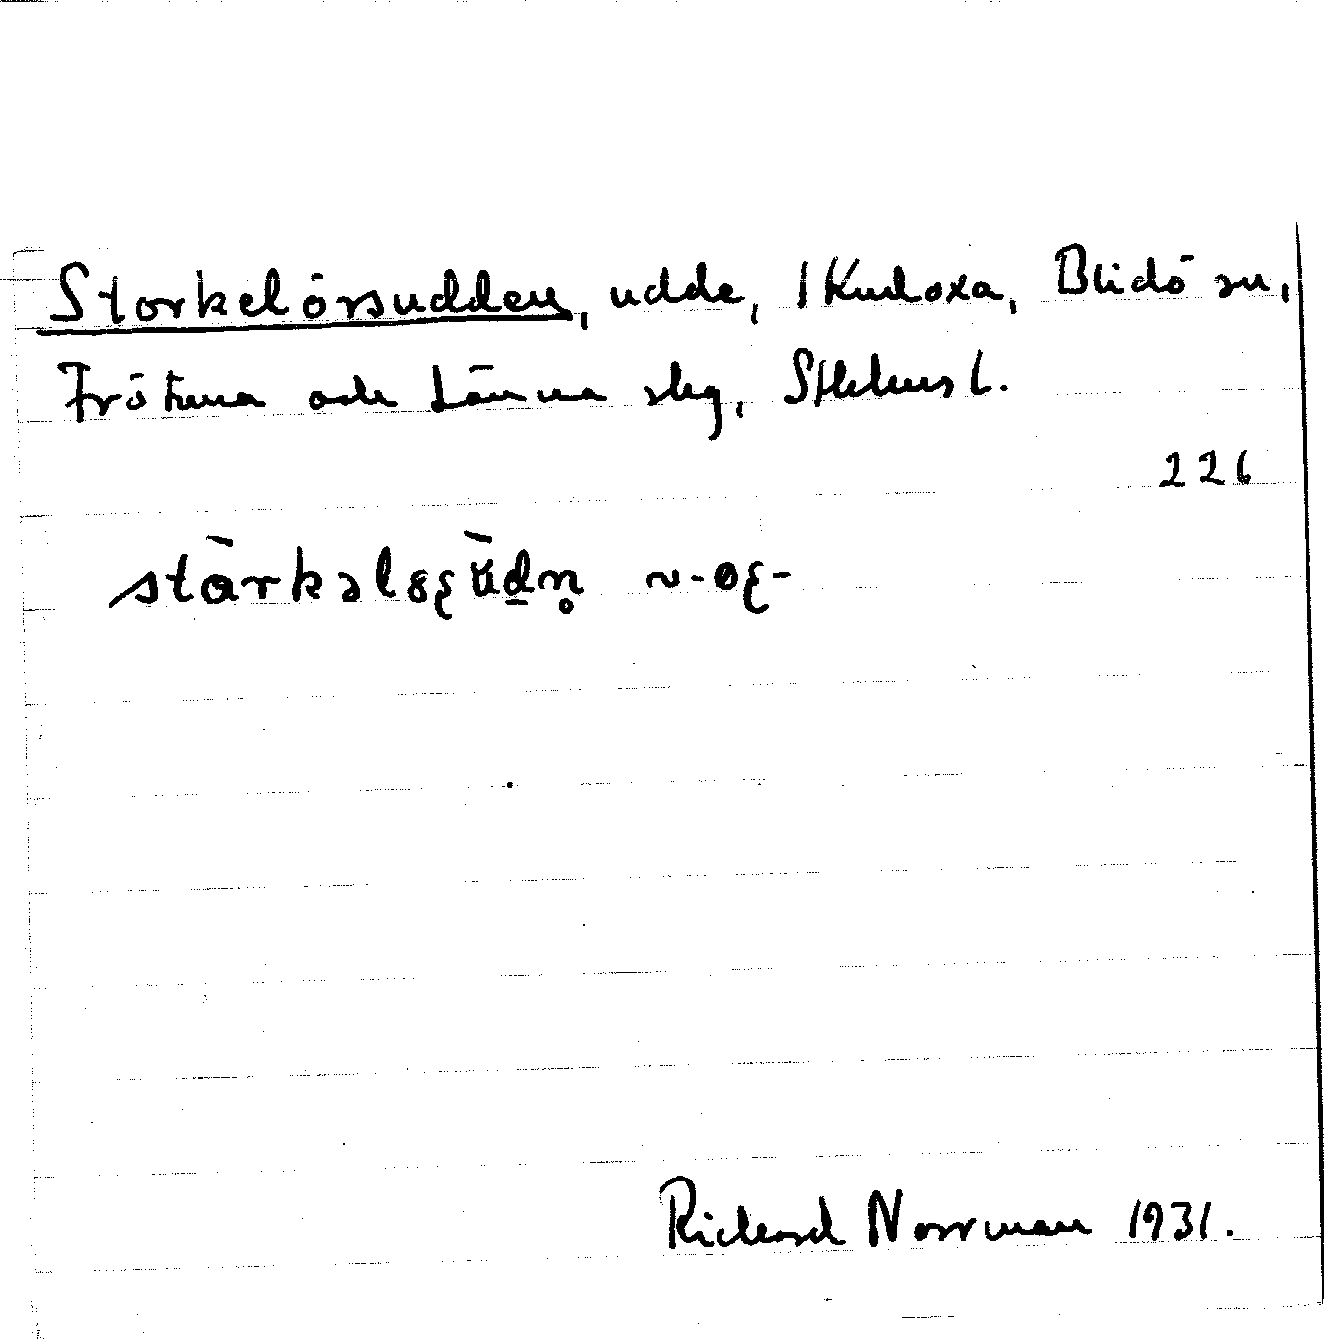 Storkelörsudden, udde, 1 Kudoxa, Blidö sn,
Frötuna och Länna skg, Sthlms l.
226
Rickard Norrman 1931.